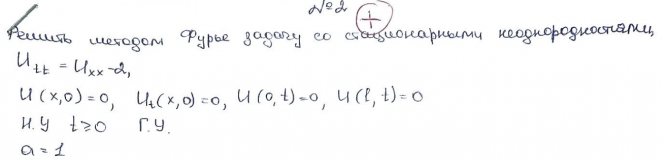 №2 +
Решить методом Фурье задачу со стационарными неоднородностями,
U_tt = U_xx - 2,
U(x,0)=0, U_t(x,0)=0, U(0,t)=0, U(l,t)=0
Н.У t⩾0 Г.У.
a=1